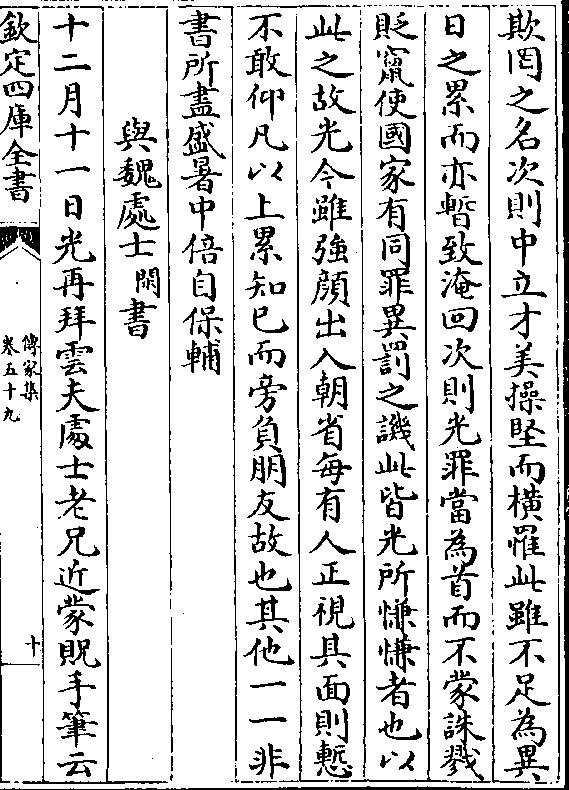 欺罔之名次則中立才美操堅而横罹此雖不足為異
日之累而亦暫致淹回次則光罪當為首而不蒙誅戮
貶竄使國家有同罪異罰之譏此皆光所慊慊者也以
此之故光今雖強顔出入朝省每有人正視其面則慙
不敢仰凡以上累知已而旁負朋友故也其他一一非
書所盡盛暑中倍自保輔
與魏處士閑書
十二月十一日光再拜雲夫處士老兄近蒙貺手筆云
欽定四庫全書
傳家集
卷五十九
十